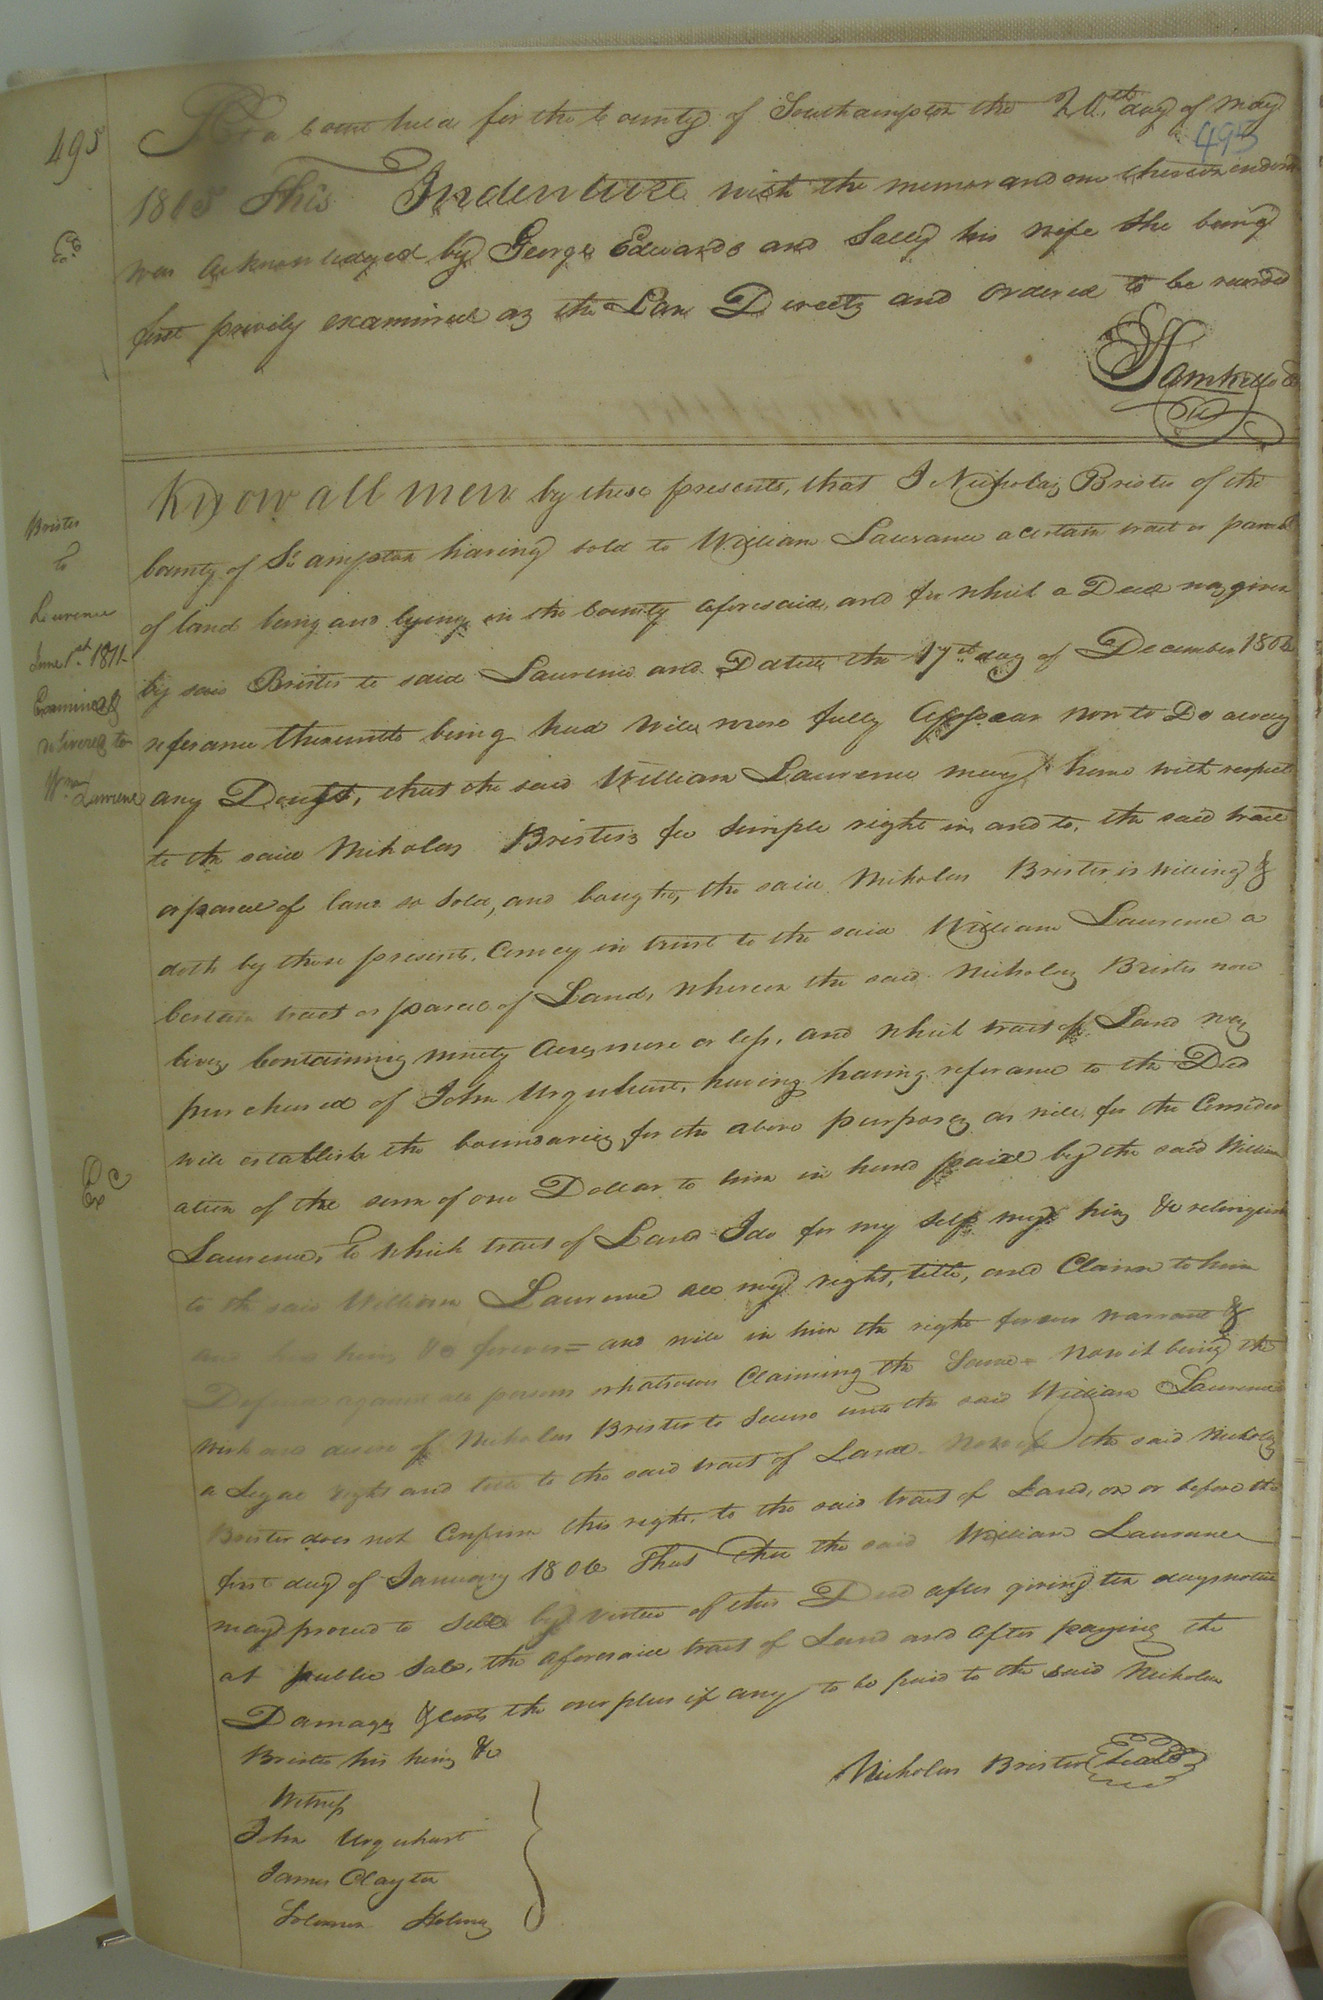 495
At a Court held for the County of Southampton the 20th day of May
495
1805 This Indenture with the memorandum thereon endorsd
was acknowledged by George Edwards and Sally his wife She being
first privily examined as the Law Directs and ordered to be recorded
Saml Kello
Know all men by these presents, that I Nicholas Brister of the
County of So.ampton having sold to William Laurance a certain tract or parcel
of land being and lying in the County aforesaid, and for which a Deed was given
by said Brister to said Laurence and Dated the 17th day of December 180
referance thereunto being had will more fully appear now to Do away
any Doubt, that the said William Laurence may have with respect
to the said Nicholas Bristers fee Simple right in, and to, the said tract
or parcel of land so Sold, and bought, the said Nicholas Brister is willing &
doth by these presents, Convey in trust to the said William Laurence a
Certain tract or parcel of Land, whereon the said Nicholas Brister now
lives, Containing ninety Acres more or less, and which tract of Land was
purchased of John Urquhart, having having referance to the Deed
will establish the boundaries for the above purposes as well for the Consider
ation of the sum of one Dollar to him in hand paid by the said William
Laurence, to which tract of Land I do for my Self my hirs &c relinquish
to the said William Laurence all my right, title, and Claim to him
and his hirs &c forever = and will in him the right forever warrant &
Defend against all persons whatsoever Claiming the Same - Now it being the
wish and desire of Nicholas Brister to Secure unto the said William Laurence
a Legal right and title to the said tract of Land - Now if the said Nicholas
Brister does not Confirm this right, to the said tract of Land, on or before the
first day of January 1806 That then the said William Laurence
may proceed to Sell by virtue of this Deed after giving ten days notice
at public Sale, the aforesaid tract of Land and after paying the
Damages & costs the overplus if any to be paid to the said Nicholas
Brister his hirs &c
Nicholas Brister Seal
Witness
John Urquhart
James Clayton
Solomon Holmes
Brister
to
Laurence
June 1st 1811
Examined &
delivered to
Wm Laurence